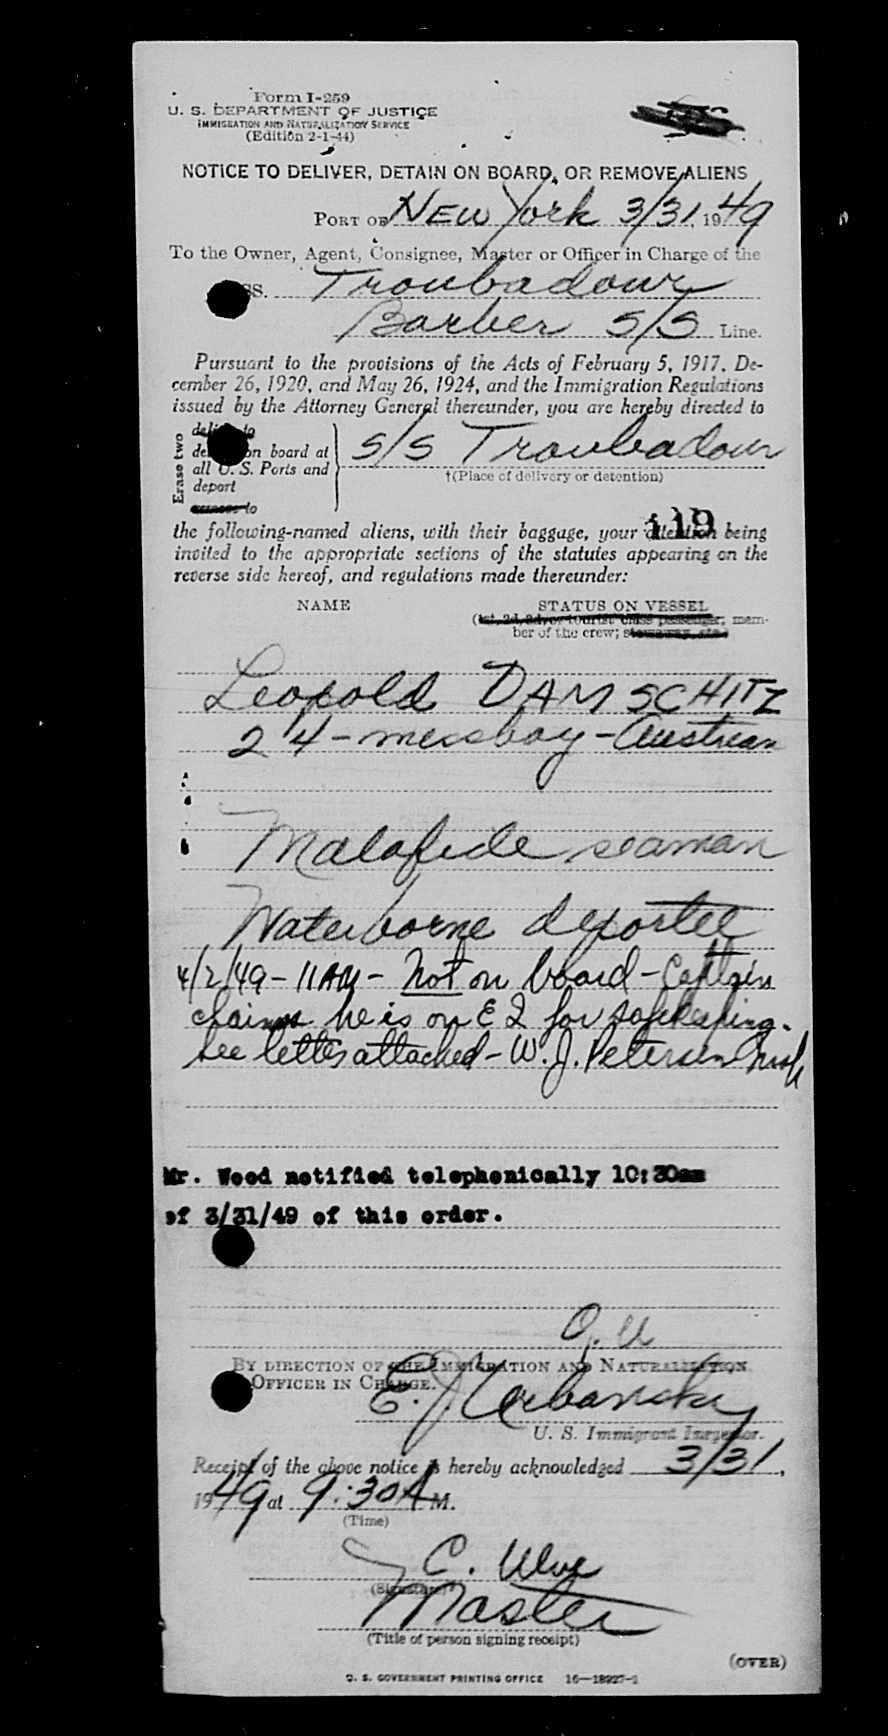 Form I-259
U. S. DEPARTMENT OF JUSTICE
IMMIGRATION AND NATURALIZATION SERVICE
(Edition 2-1-44)
NOTICE TO DELIVER, DETAIN ON BOARD, OR REMOVE ALIENS
PORT OF New York 3/31, 1949
To the Owner, Agent, Consignee, Master or Officer in Charge of the
SS. Troubadour
Barber S/S Line.
Pursuant to the provisions of the Acts of February 5, 1917, De-
cember 26, 1920, and May 26, 1924, and the Immigration Regulations
issued by the Attorney General thereunder, you are hereby directed to
Erase two
deliver to
detain on board at
all U. S. Ports and
deport
remove to
S/S Troubadour
†(Place of delivery or detention)
119
the following-named aliens, with their baggage, your attention being
invited to the appropriate sections of the statutes appearing on the
reverse side hereof, and regulations made thereunder:
NAME STATUS ON VESSEL
(1st, 2d, 3d, or tourist class passenger; mem-
ber of the crew; stowaway, etc.)
Leopold DAMSCHITZ
24 - messboy - Austrian
Malafide seaman
Waterborne deportee
4/2/49 - 11 AM - Not on board - Captain
claims he is on E I for safekeeping.
See letter attached - W. J. Petersen
Mr. Wood notified telephonically 10:30am
of 3/31/49 of this order.
BY DIRECTION OF THE IMMIGRATION AND NATURALIZATION
OFFICER IN CHARGE.
E. J. Urbanski
U. S. Immigrant Inspector.
Receipt of the above notice is hereby acknowledged 3/31,
1949 at 9:30 A M.
(Time)
C.
(Signature)
Master
(Title of person signing receipt)
(OVER)
U. S. GOVERNMENT PRINTING OFFICE 16-18927-1